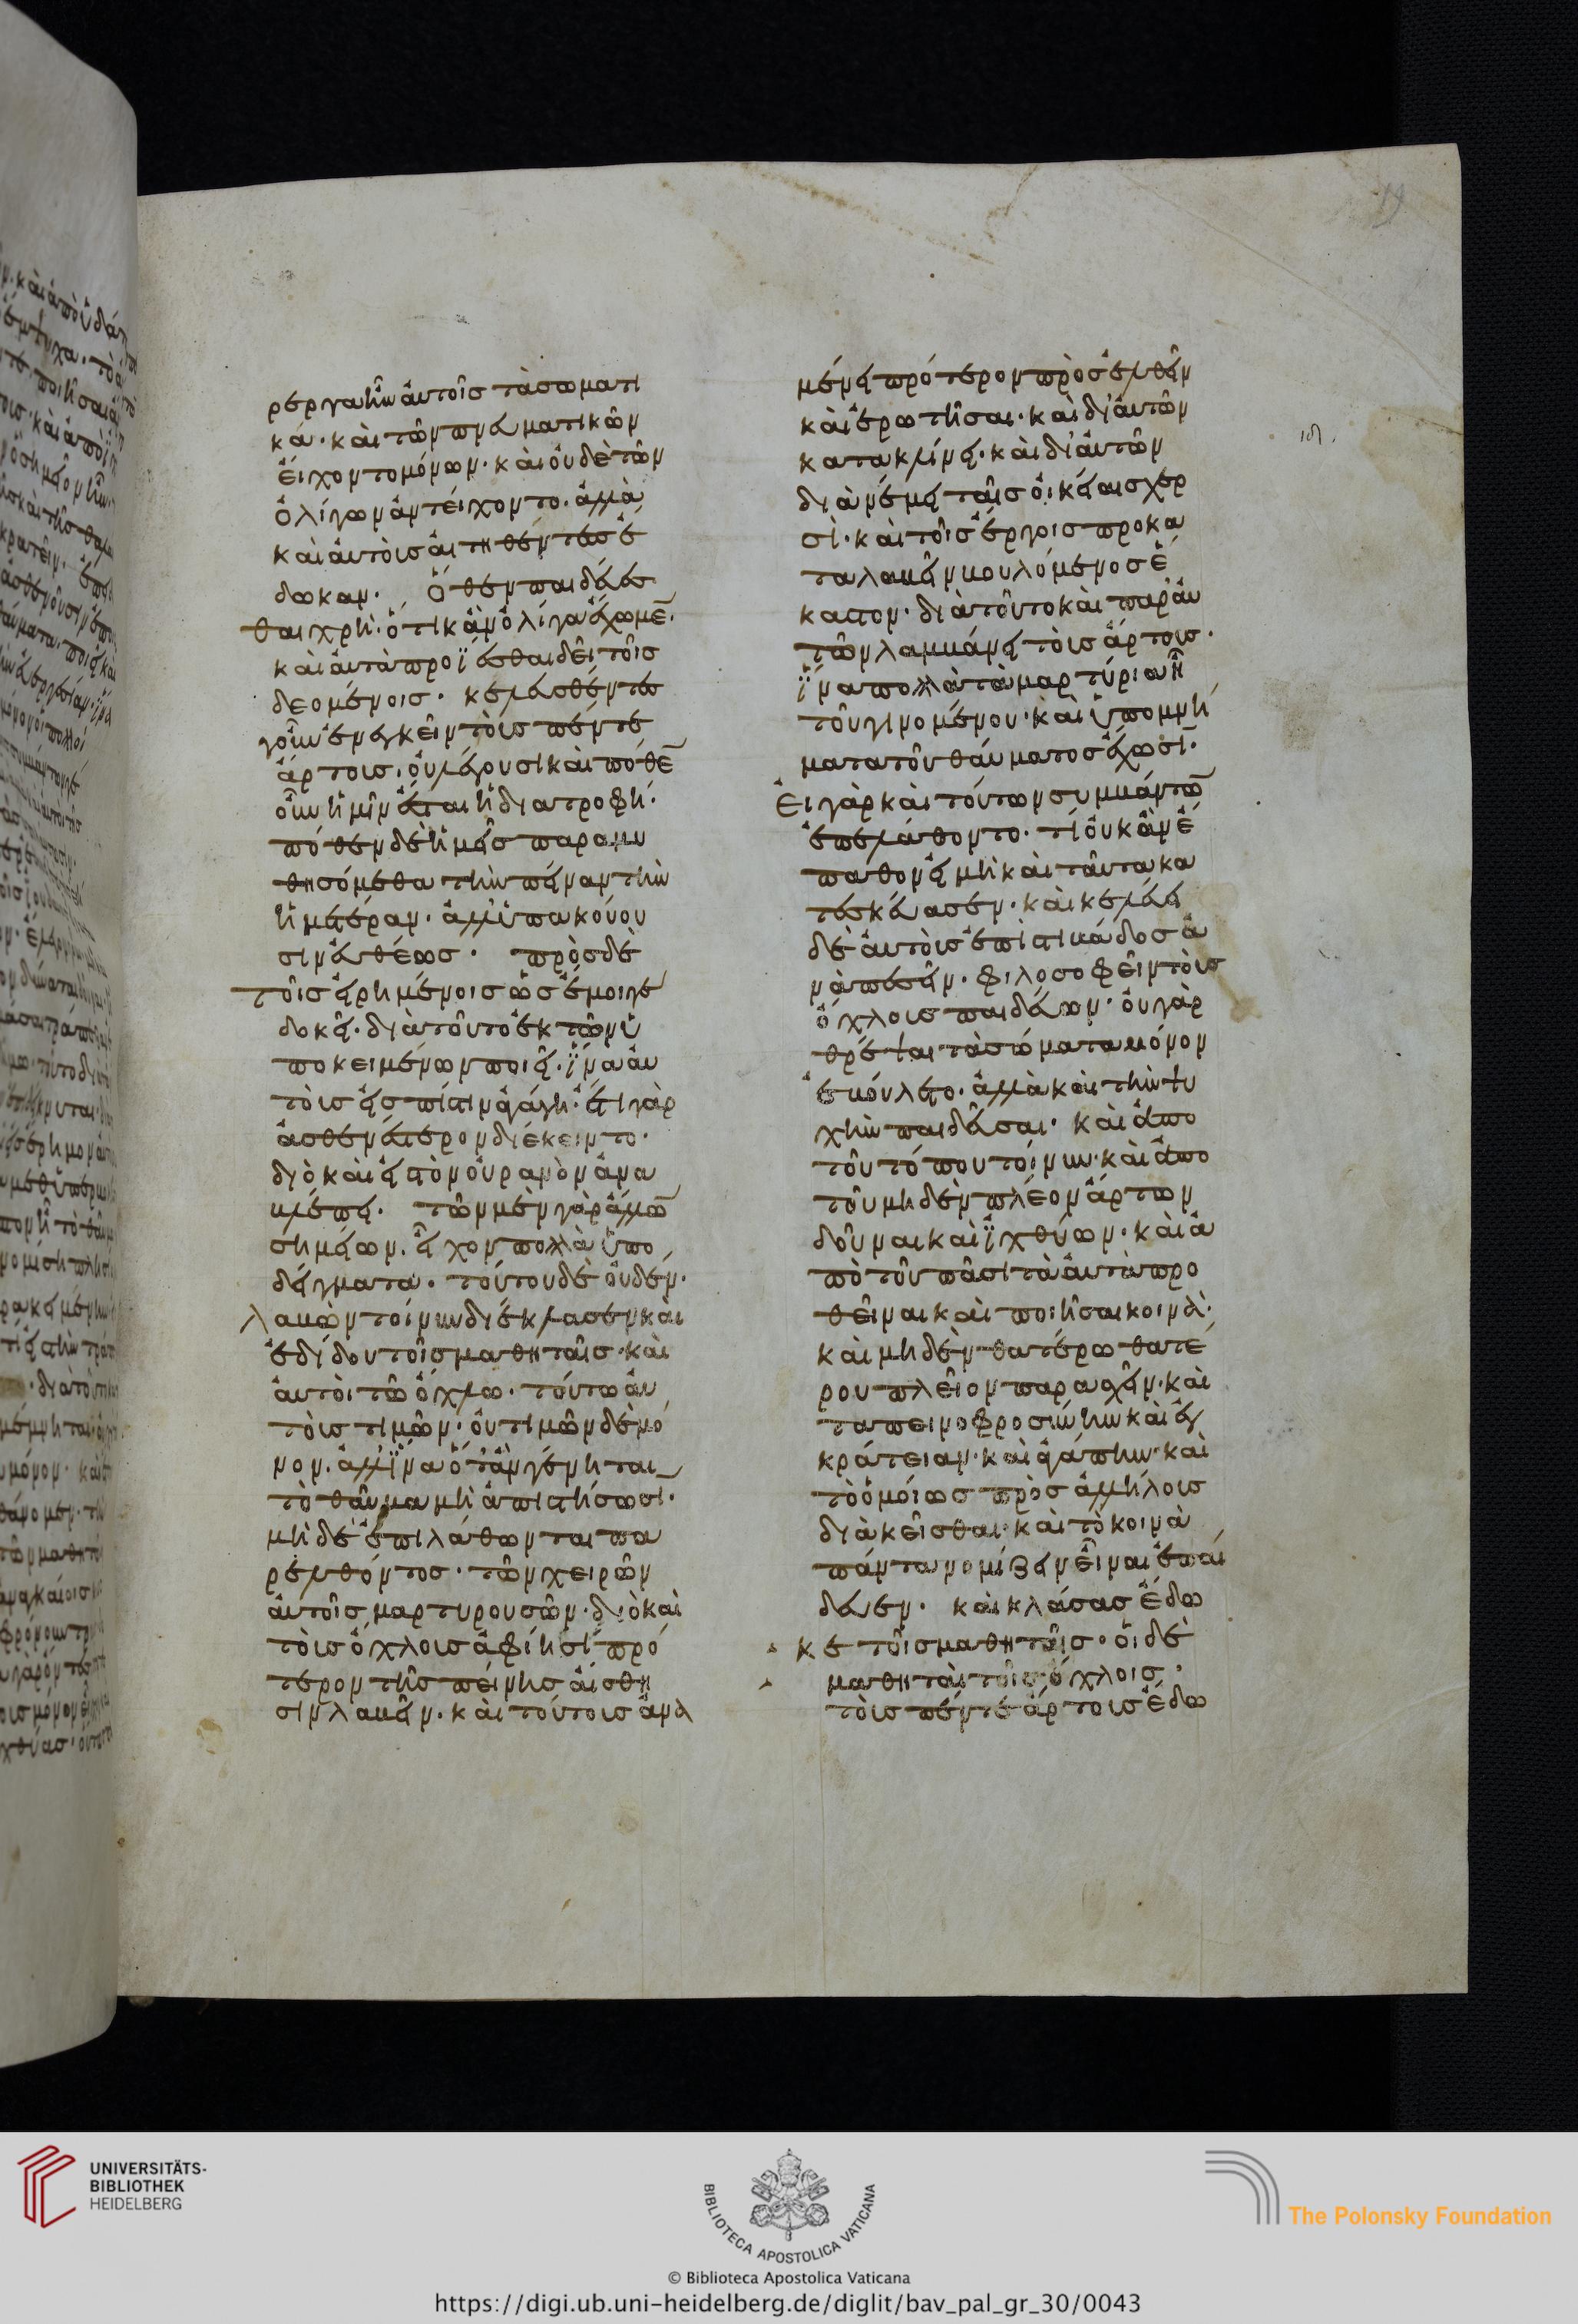 ρεργα ἦν αὐτοῖς τὰ σωματι
κά· καὶ τῶν πνευματικῶν
εἴχοντο μόνων· καὶ οὐδὲ τῶν
ὀλίγων ἀντείχοντο· ἀλλὰ
καὶ αὐτοὺς αἰτηθέντες ἔ
δωκαν. Ὅθεν παιδεύεσ
θαι χρή· ὅτι κἂν ὀλίγα ἔχωμε̅·
καὶ αὐτὰ προΐεσθαι δεῖ τοῖς
δεομένοις· κελευσθέντες
γοῦν ἐνεγκεῖν τοὺς πέντε
ἄρτους· οὐ λέγουσι καὶ πόθε̅
οὖν ἡμῖν ἔσται ἡ διατροφή·
πόθεν δὲ ἡμεῖς παραμυ
θησόμεθα τὴν πεῖναν τὴν
ἡμετέραν· ἀλλ' ὑπακούου
σιν εὐθέως· πρὸς δὲ
τοῖς εἰρημένοις ὡς ἔμοιγε
δοκεῖ· διὰ τοῦτο ἐκ τῶν ὑ
ποκειμένων ποιεῖ· ἵνα αὐ
τοὺς εἰς πίστιν ἀγάγη· ἔτι γὰρ
ἀσθενέστερον διέκειντο·
διὸ καὶ εἰς τὸν οὐρανὸν ἀνα
βλέπει· τῶν μὲν γὰρ ἄλλω̅
σημείων· εἶχον πολλὰ ὑπο
δείγματα· τούτου δὲ οὐδέν·
λαβὼν τοίνυν διέκλασεν καὶ
ἐδίδου τοῖς μαθηταῖς· καὶ
αὐτοὶ τῶ ὄχλω· τούτω αὐ
τοὺς τιμῶν· οὐ τιμῶν δὲ μό
νον· ἀλλ' ἵνα ὅταν γένηται
τὸ θαῦμα μὴ ἀπιστήσωσι·
μὴ δὲ ἐπιλάθωνται πα
ρελθόντος· τῶν χειρῶν
αὐτοῖς μαρτυρουσῶν· διὸ καὶ
τοὺς ὄχλους ἀφίησι πρό
τερον τῆς πείνης αἴσθη
σιν λαβεῖν· καὶ τούτους ἀνα
μένει πρότερον προσελθεῖν
καὶ ἐρωτῆσαι· καὶ δι' αὐτῶν
κατακλίνει· καὶ δι' αὐτῶν
διανέμει ταῖς οἰκείαις χερ
σὶ· καὶ τοῖς ἔργοις προκα
ταλαβεῖν βουλόμενος ἕ
καστον· διὰ τοῦτο καὶ παρ' αὐ
τῶν λαμβάνει τοὺς ἄρτους·
ἵνα πολλὰ τὰ μαρτύρια ἦ
τοῦ γινομένου· καὶ ὑπομνή
ματα τοῦ θαύματος ἔχωσι·
Εἰ γὰρ καὶ τούτων συμβάντω̅
ἐπελάθοντο· τί οὐκ ἂν ἔ
παθον εἰ μὴ καὶ ταῦτα κα
τεσκεύασεν· καὶ κελεύει
δὲ αὐτοὺς ἐπὶ στιβάδος ἀ
ναπεσεῖν· φιλοσοφεῖν τοὺς
ὄχλους παιδεύων· οὐ γὰρ
θρέψαι τὰ σώματα μόνον
ἐβούλετο· ἀλλὰ καὶ τὴν ψυ
χὴν παιδεῦσαι· καὶ ἀπὸ
τοῦ τόπου τοίνυν· καὶ ἀπὸ
τοῦ μηδὲν πλέον ἄρτων
δοῦναι καὶ ἰχθύων· καὶ ἀ
πὸ τοῦ πᾶσι τὰ αὐτὰ προ
θεῖναι καὶ ποιῆσαι κοινά·
καὶ μηδὲν θατέρω θατέ
ρου πλεῖον παρασχεῖν· καὶ
ταπεινοφροσύνην καὶ ἐγ
κράτειαν· καὶ ἀγάπην· καὶ
τὸ ὁμοίως πρὸς ἀλλήλους
διακεῖσθαι· καὶ τὸ κοινὰ
πάντα νομίζειν εἶναι ἐπαί
δευεν· καὶ κλάσας ἔδω
κε τοῖς μαθηταῖς· οἱ δὲ
μαθηταὶ τοῖς ὄχλοις·
τοὺς πέντε ἄρτους ἔδω
UNIVERSITÄTS-
BIBLIOTHEK
HEIDELBERG
BIBLIOTECA APOSTOLICA VATICANA
The Polonsky Foundation
© Biblioteca Apostolica Vaticana
https://digi.ub.uni-heidelberg.de/diglit/bav_pal_gr_30/0043